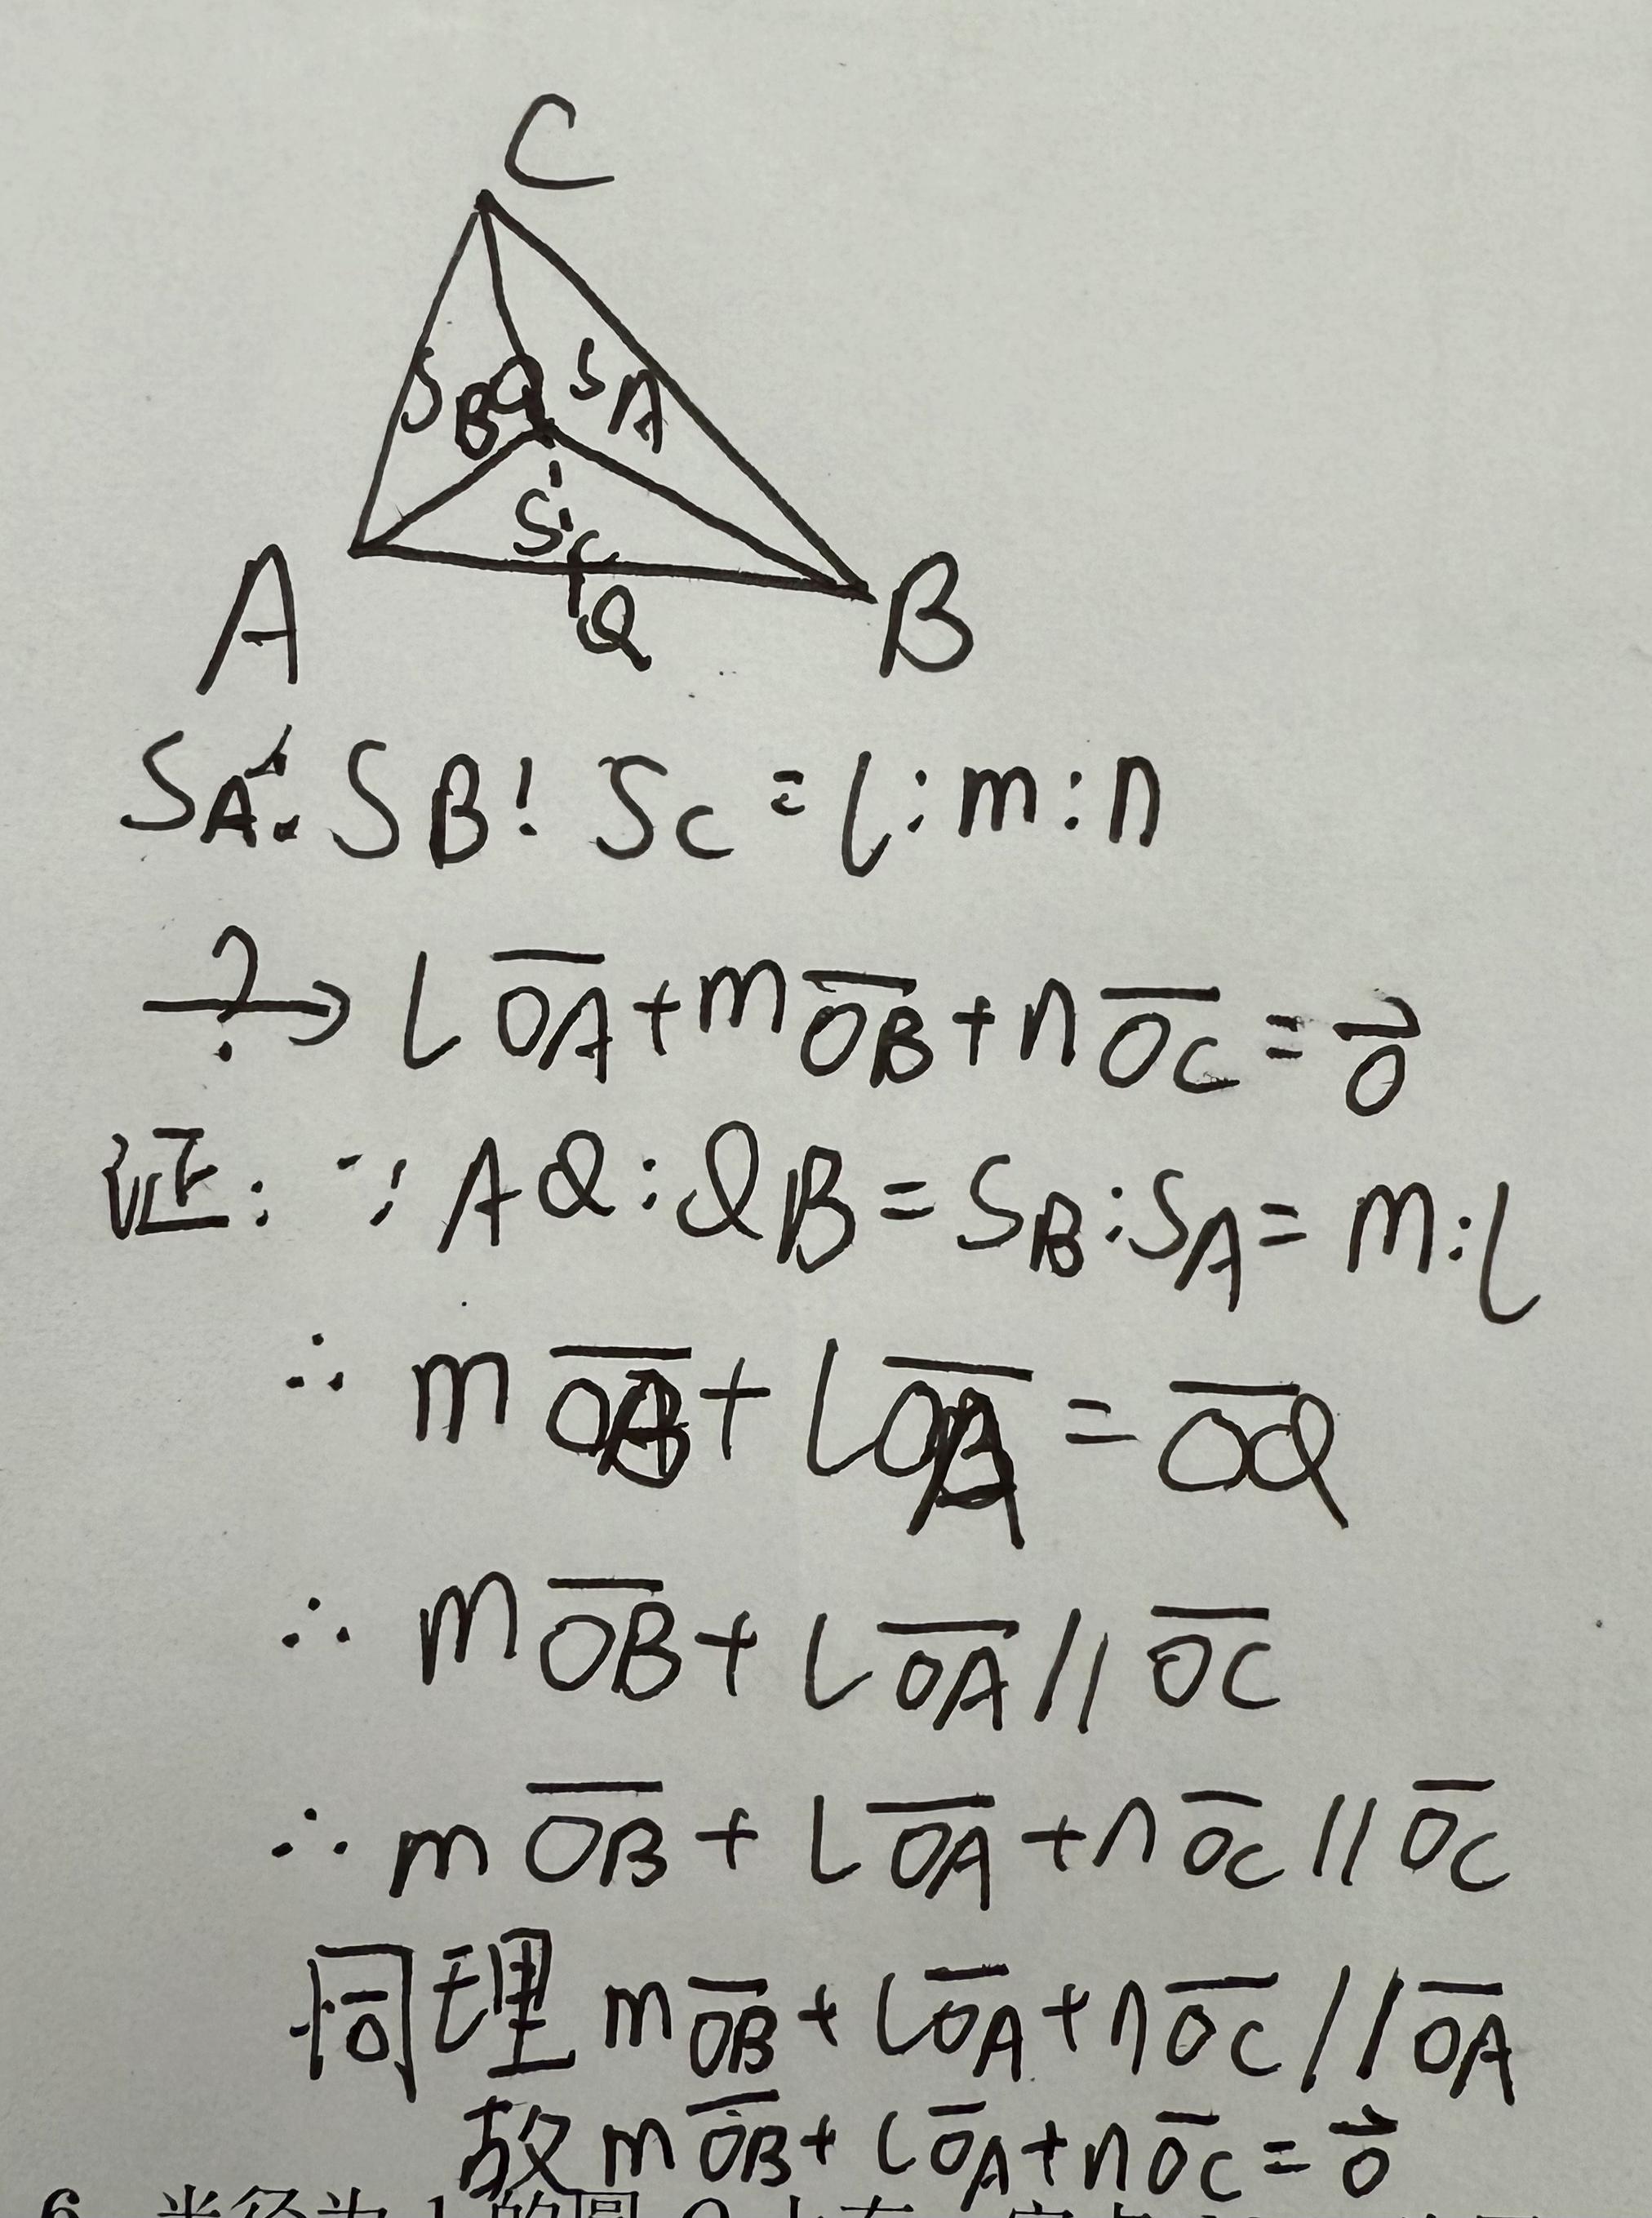 C
S_B O S_A
S_C
A Q B
S_A : S_B : S_C = l : m : n
? → l \overline{OA} + m \overline{OB} + n \overline{OC} = \vec{0}
证: ∵ AQ : QB = S_B : S_A = m : l
∴ m \overline{OB} + l \overline{OA} = \overline{OQ}
∴ m \overline{OB} + l \overline{OA} // \overline{OC}
∴ m \overline{OB} + l \overline{OA} + n \overline{OC} // \overline{OC}
同理 m \overline{OB} + l \overline{OA} + n \overline{OC} // \overline{OA}
故 m \overline{OB} + l \overline{OA} + n \overline{OC} = \vec{0}
6 半径为 1 的圆 O 上有